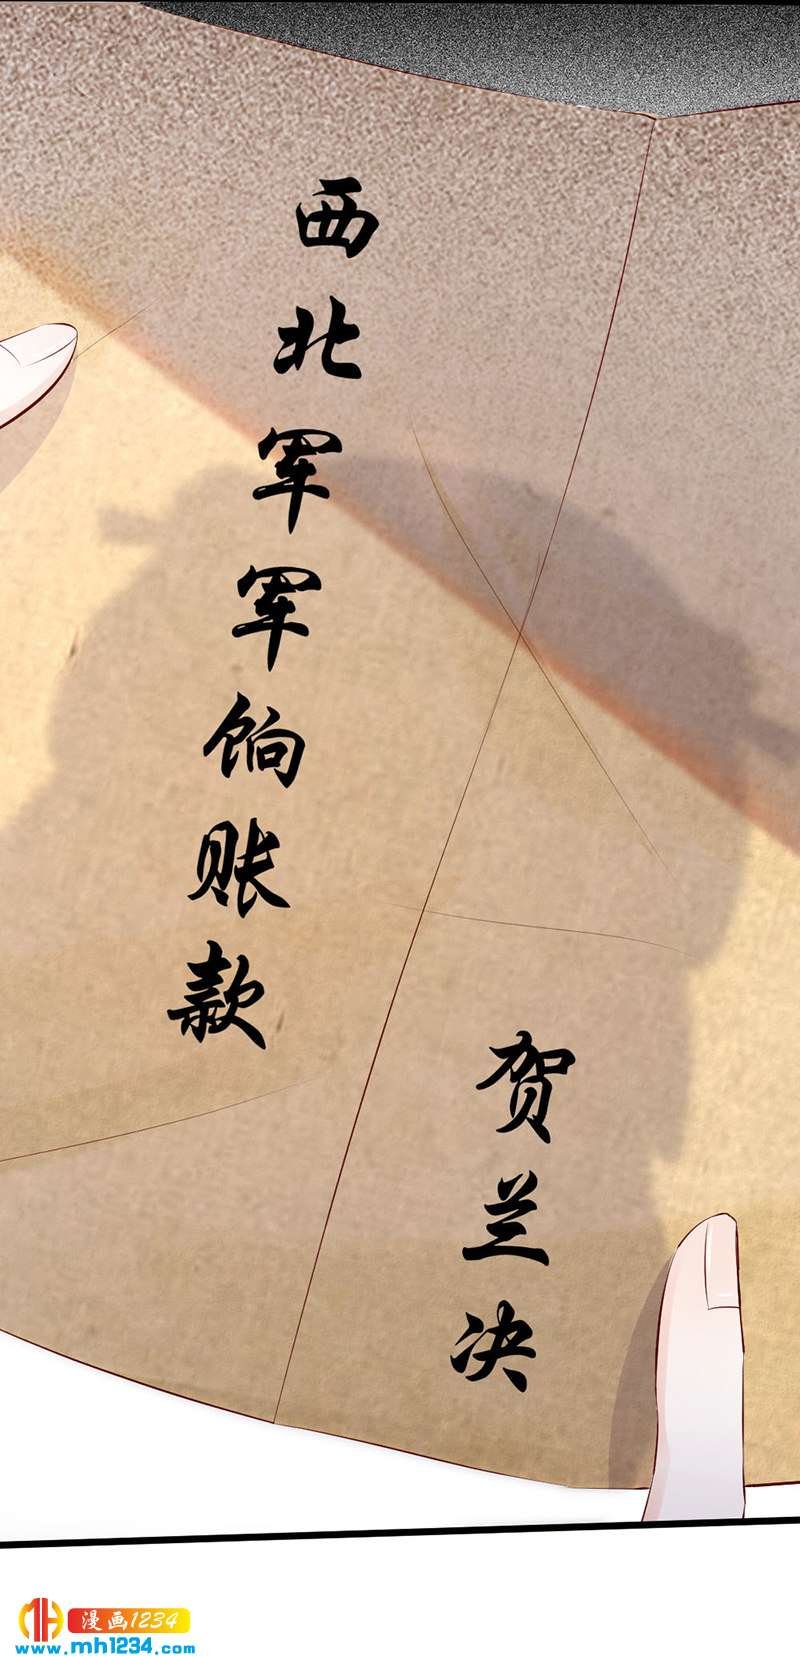 西北军军饷账款
贺兰决
漫画1234
www.mh1234.com